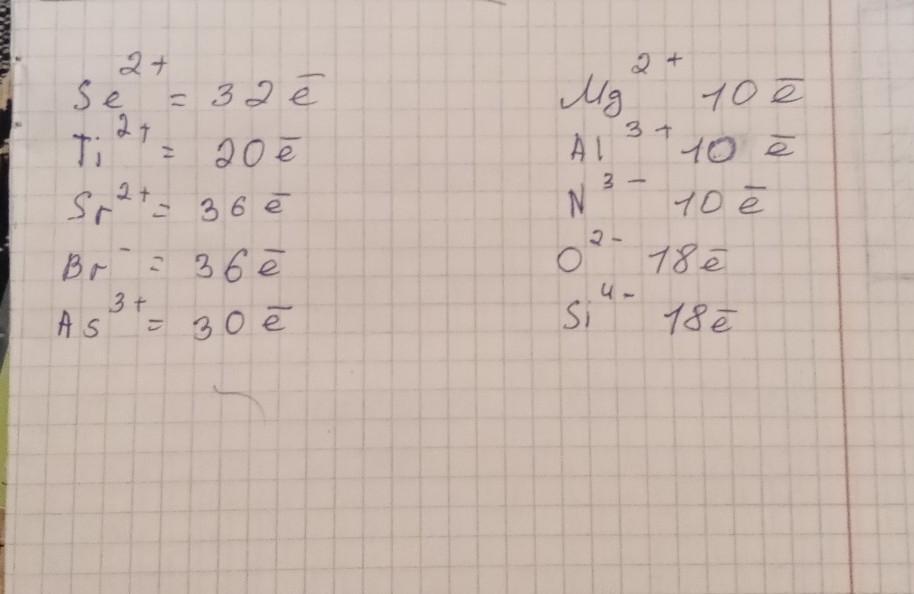 Se²⁺ = 32ē
Ti²⁺ = 20ē
Sr²⁺ = 36ē
Br⁻ = 36ē
As³⁺ = 30ē
Mg²⁺ 10ē
Al³⁺ 10ē
N³⁻ 10ē
O²⁻ 18ē
Si⁴⁻ 18ē